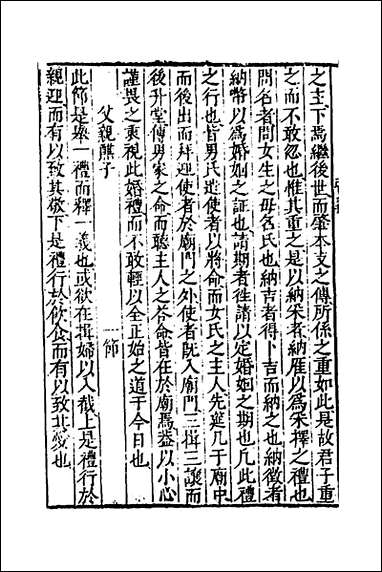 之主下焉繼後世而肇本支之傳所係之重如此是故君子重
之而不敢忽也惟其重之是以納采者納雁以爲采擇之禮也
問名者問女生之母名氏也納吉者得卜吉而納之也納徵者
納幣以爲婚姻之証也請期者徃請以定婚姻之期也凡此禮
之行也皆男氏遣使者以將命而女氏之主人先筵几于廟中
而後出而拜迎使者於廟門之外使者既入廟門三揖三讓而
後升堂傳男家之命而聽主人之答命皆在於廟焉蓋以小心
謹畏之衷視此婚禮而不敢輕以全正始之道于今日也
父親醮子 一節
此節是舉一禮而釋一義也或欲在揖婦以入截上是禮行於
親迎而有以致其敬下是禮行於飲食而有以致其愛也